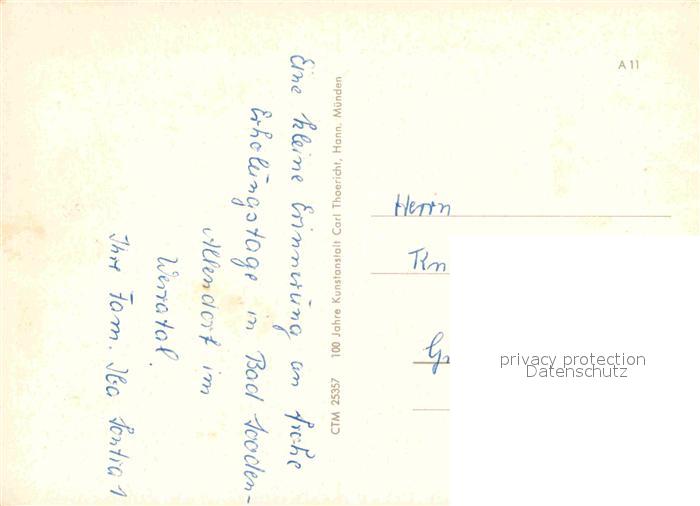 Eine kleine Erinnerung an frohe
Erholungstage in Bad Sooden-
Allendorf im
Werratal.
Ihre Fam.
CTM 25357 100 Jahre Kunstanstalt Carl Thoericht, Hann. Münden
A 11
Herrn
Kn
Gr
privacy protection
Datenschutz